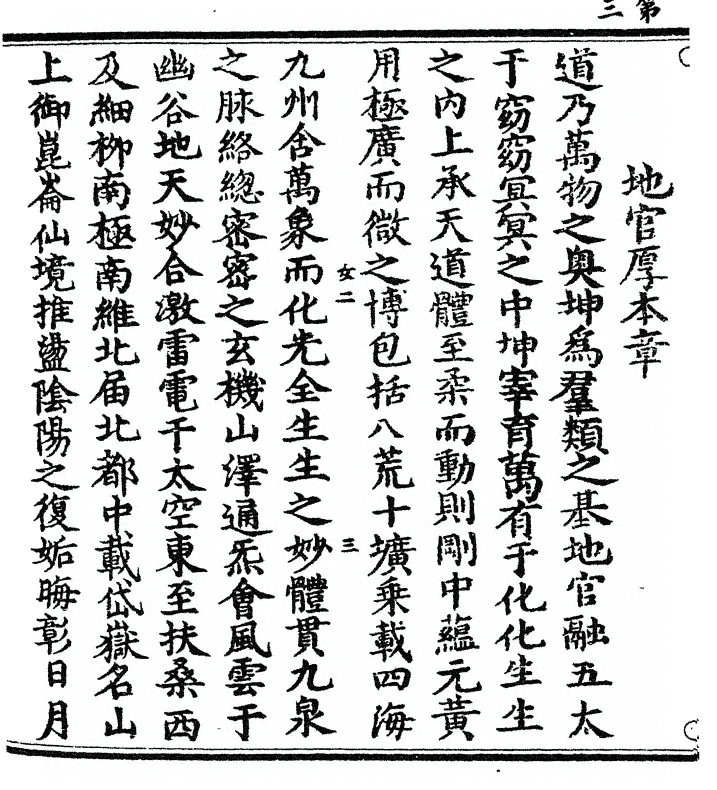 第三
地官厚本章
道乃萬物之奥坤爲羣類之基地官融五太
于窈窈冥冥之中坤宰育萬有于化化生生
之内上承天道體至柔而動則剛中蘊元黄
用極廣而微之博包括八荒十壙乗載四海
女二
三
九州含萬象而化先全生生之妙體貫九泉
之脉絡總密密之玄機山澤通炁會風雲于
幽谷地天妙合激雷電于太空東至扶桑西
及細柳南極南維北届北都中載岱嶽名山
上御崑崙仙境推盪陰陽之復姤晦彰日月